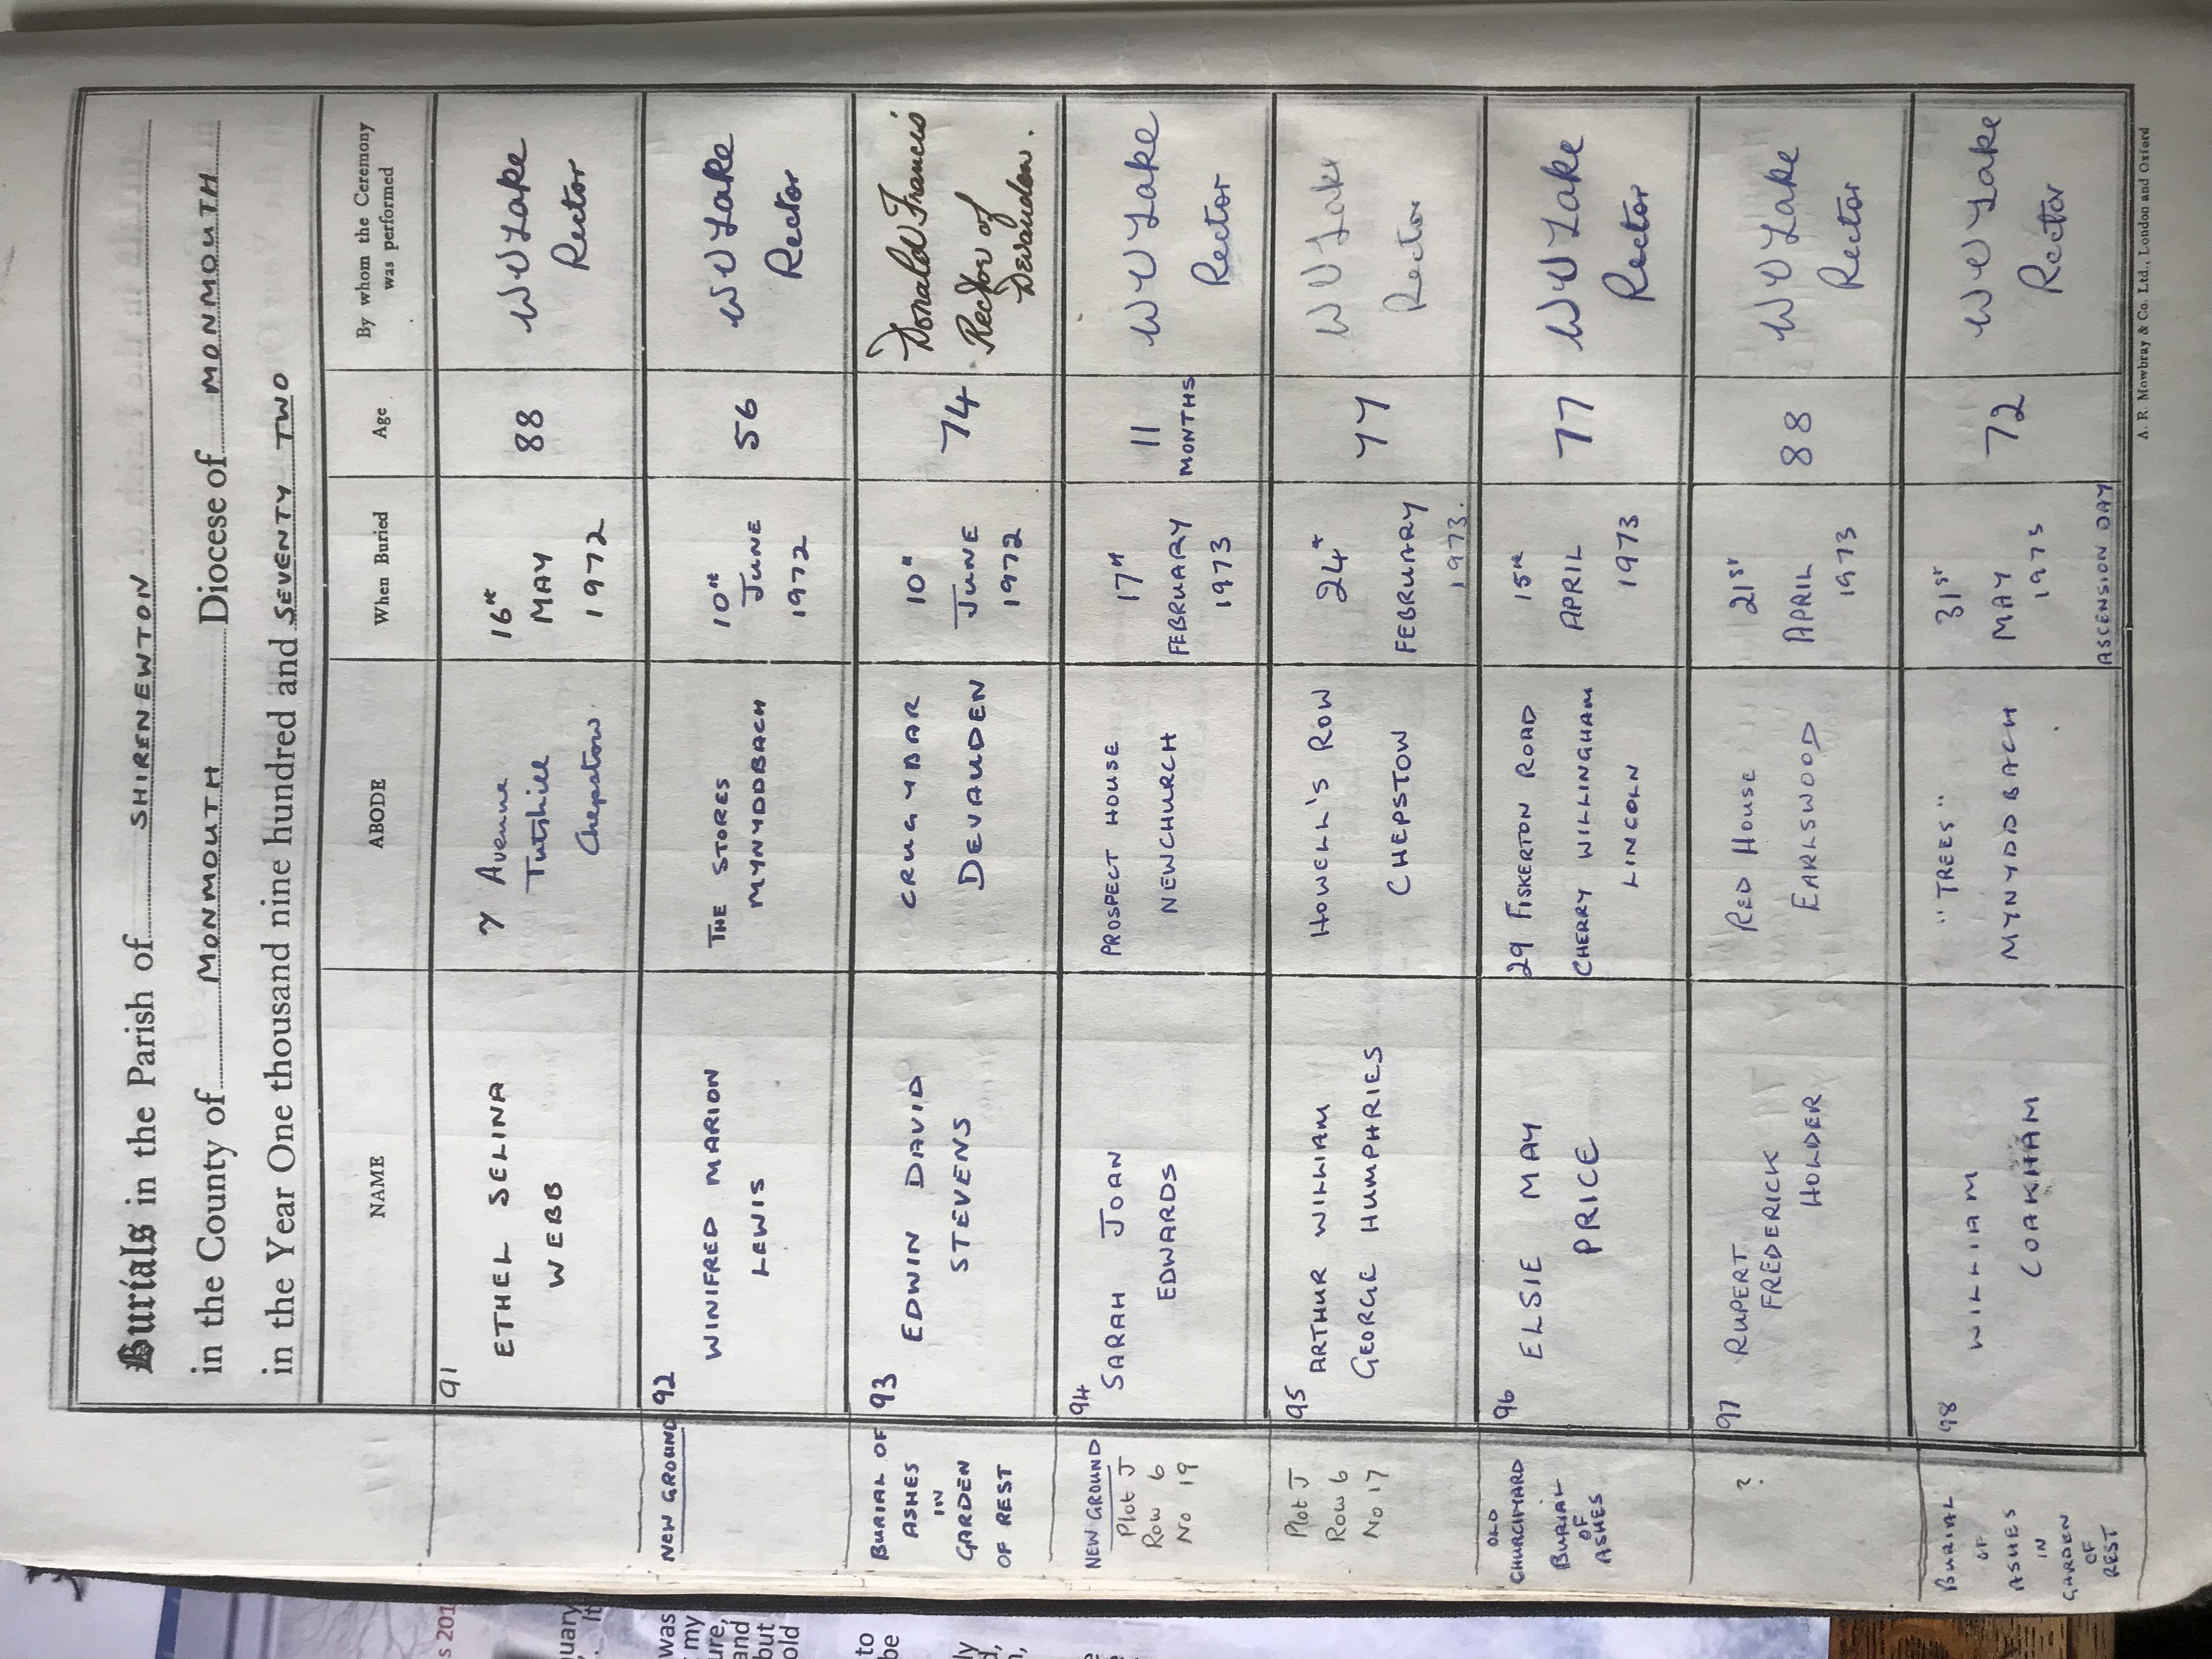 Burials in the Parish of SHIRENEWTON
in the County of MONMOUTH Diocese of MONMOUTH
in the Year One thousand nine hundred and SEVENTY TWO
NAME
ABODE
When Buried
Age
By whom the Ceremony
was performed
91
ETHEL SELINA
WEBB
7 Avenue
Tutshill
Chepstow
16th
MAY
1972
88
W V Lake
Rector
NEW GROUND
92
WINIFRED MARION
LEWIS
THE STORES
MYNYDDBACH
10th
JUNE
1972
56
W V Lake
Rector
BURIAL OF
ASHES
IN
GARDEN
OF REST
93
EDWIN DAVID
STEVENS
CRUGYBAR
DEVAUDEN
10"
JUNE
1972
74
Donald Francis
Rector of
Devauden.
NEW GROUND
Plot J
Row 6
No 19
94
SARAH JOAN
EDWARDS
PROSPECT HOUSE
NEWCHURCH
17th
FEBRUARY
1973
11
MONTHS
W V Lake
Rector
Plot J
Row 6
No 17
95
ARTHUR WILLIAM
GEORGE HUMPHRIES
HOWELL'S ROW
CHEPSTOW
24th
FEBRUARY
1973.
77
W V Lake
Rector
OLD
CHURCHYARD
BURIAL
OF
ASHES
96
ELSIE MAY
PRICE
29 FISKERTON ROAD
CHERRY WILLINGHAM
LINCOLN
15th
APRIL
1973
77
W V Lake
Rector
?
97
RUPERT
FREDERICK
HOLDER
RED HOUSE
EARLSWOOD
21st
APRIL
1973
88
W V Lake
Rector
BURIAL
OF
ASHES
IN
GARDEN
OF
REST
98
WILLIAM
COAKHAM
"TREES"
MYNYDDBACH
31st
MAY
1973
ASCENSION DAY
72
W V Lake
Rector
A. R. Mowbray & Co. Ltd., London and Oxford
s 201
uary
. It
was
my
ure,
and
but
old
to
be
ly